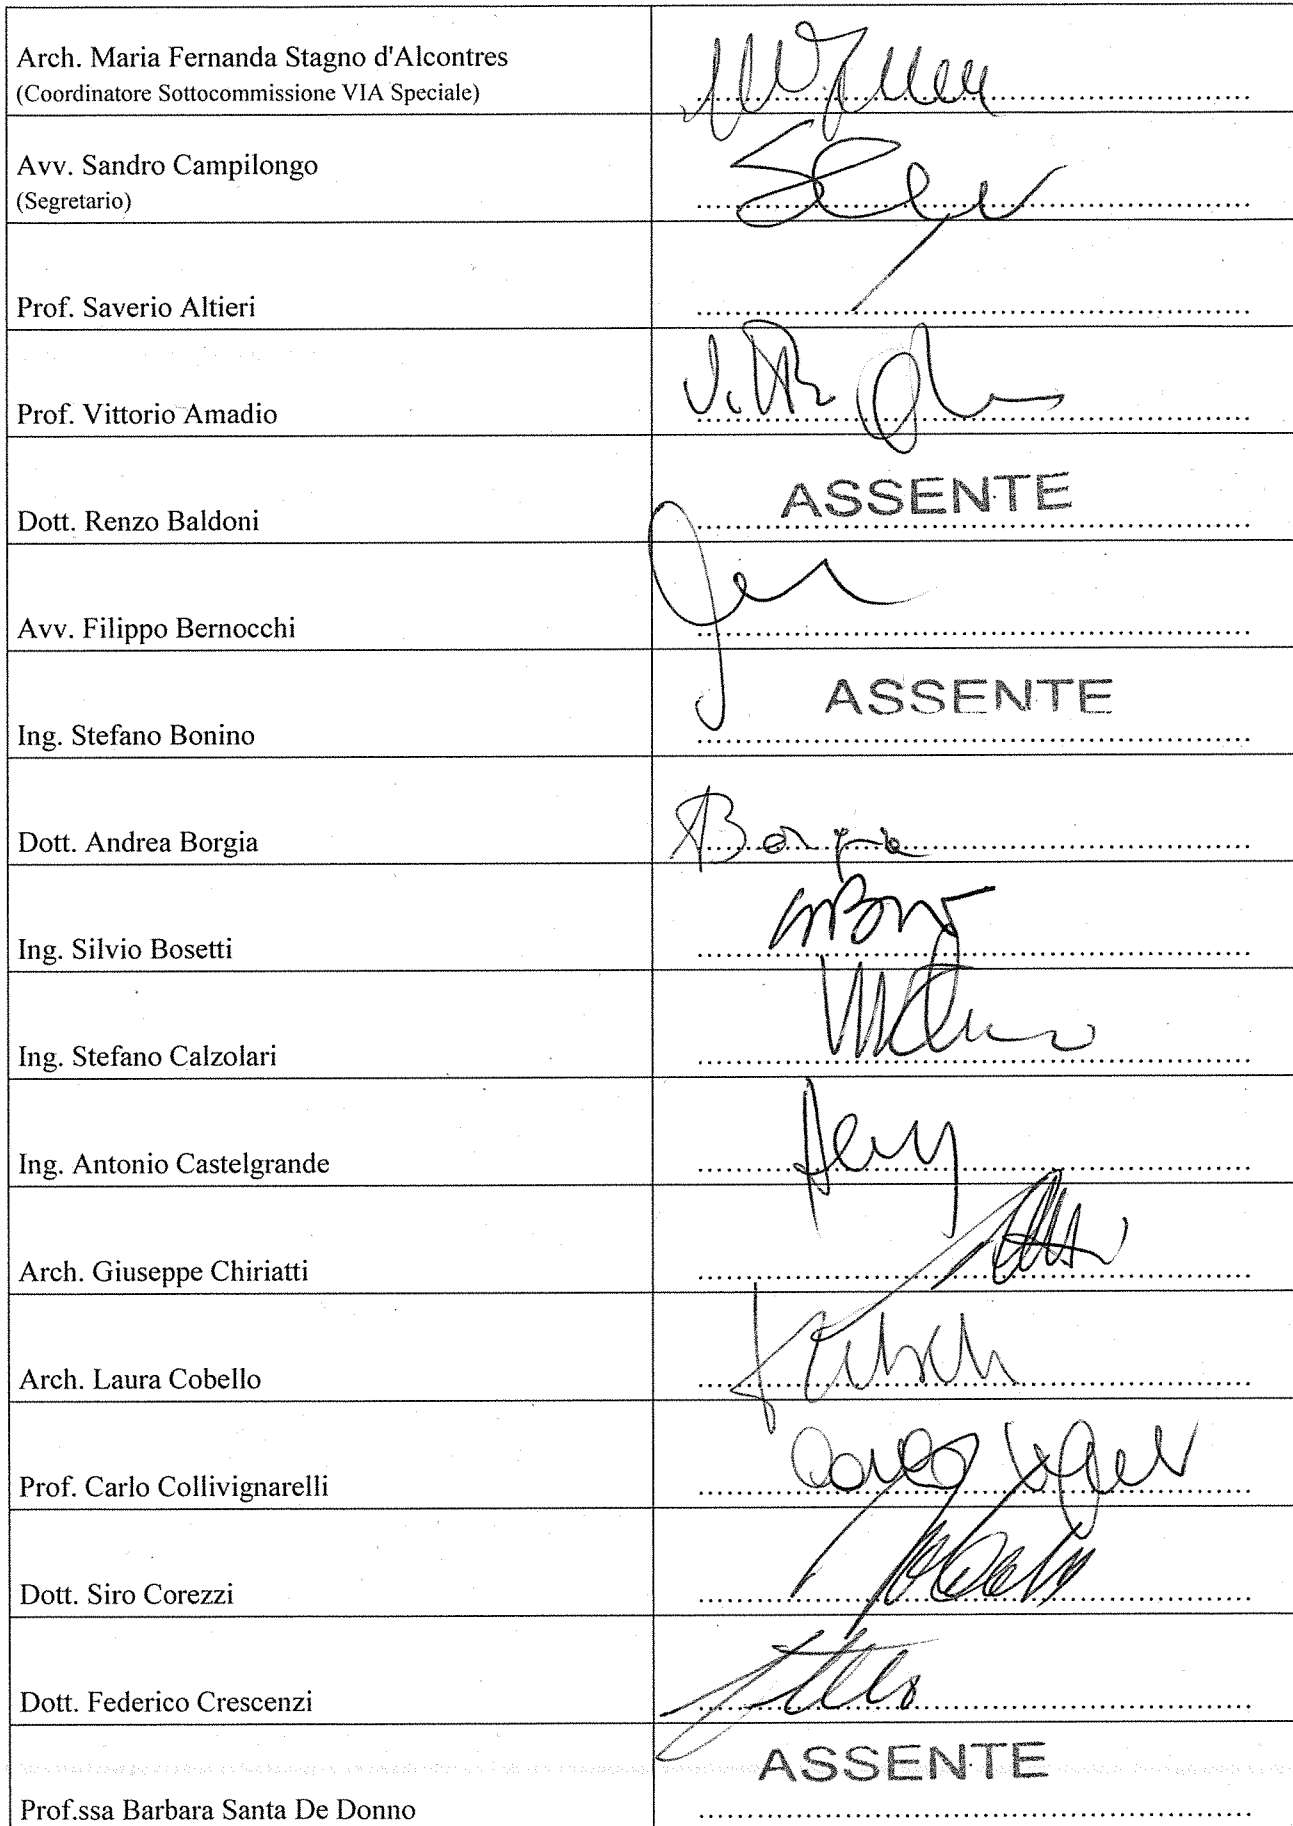 Arch. Maria Fernanda Stagno d'Alcontres
(Coordinatore Sottocommissione VIA Speciale)
Avv. Sandro Campilongo
(Segretario)
Prof. Saverio Altieri
Prof. Vittorio Amadio
ASSENTE
Dott. Renzo Baldoni
Avv. Filippo Bernocchi
ASSENTE
Ing. Stefano Bonino
Dott. Andrea Borgia
Ing. Silvio Bosetti
Ing. Stefano Calzolari
Ing. Antonio Castelgrande
Arch. Giuseppe Chiriatti
Arch. Laura Cobello
Prof. Carlo Collivignarelli
Dott. Siro Corezzi
Dott. Federico Crescenzi
ASSENTE
Prof.ssa Barbara Santa De Donno